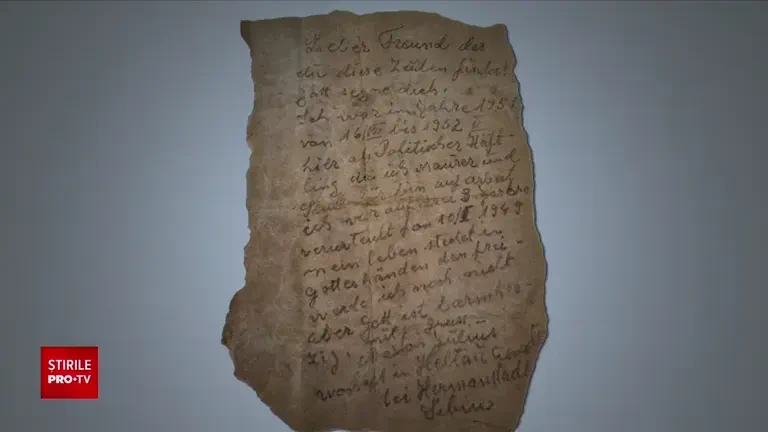 Lieber Freund der
du diese Zeilen findest
Gott segne dich.
Ich war im Jahre 1951
von 16 bis 1952 V
hier als Politischer Häft-
ling da ich Maurer und
bin auf arbeit
ich war auf 3 jahre
verurteilt von 10/I 1949
mein leben steht in
gotteshänden den frei-
werde ich noch nicht
aber Gott ist barmher-
zig, mit gruss
Julius
wohnhaft in Heltau
bei Hermannstadt
Sebiu
ȘTIRILE
PRO•TV